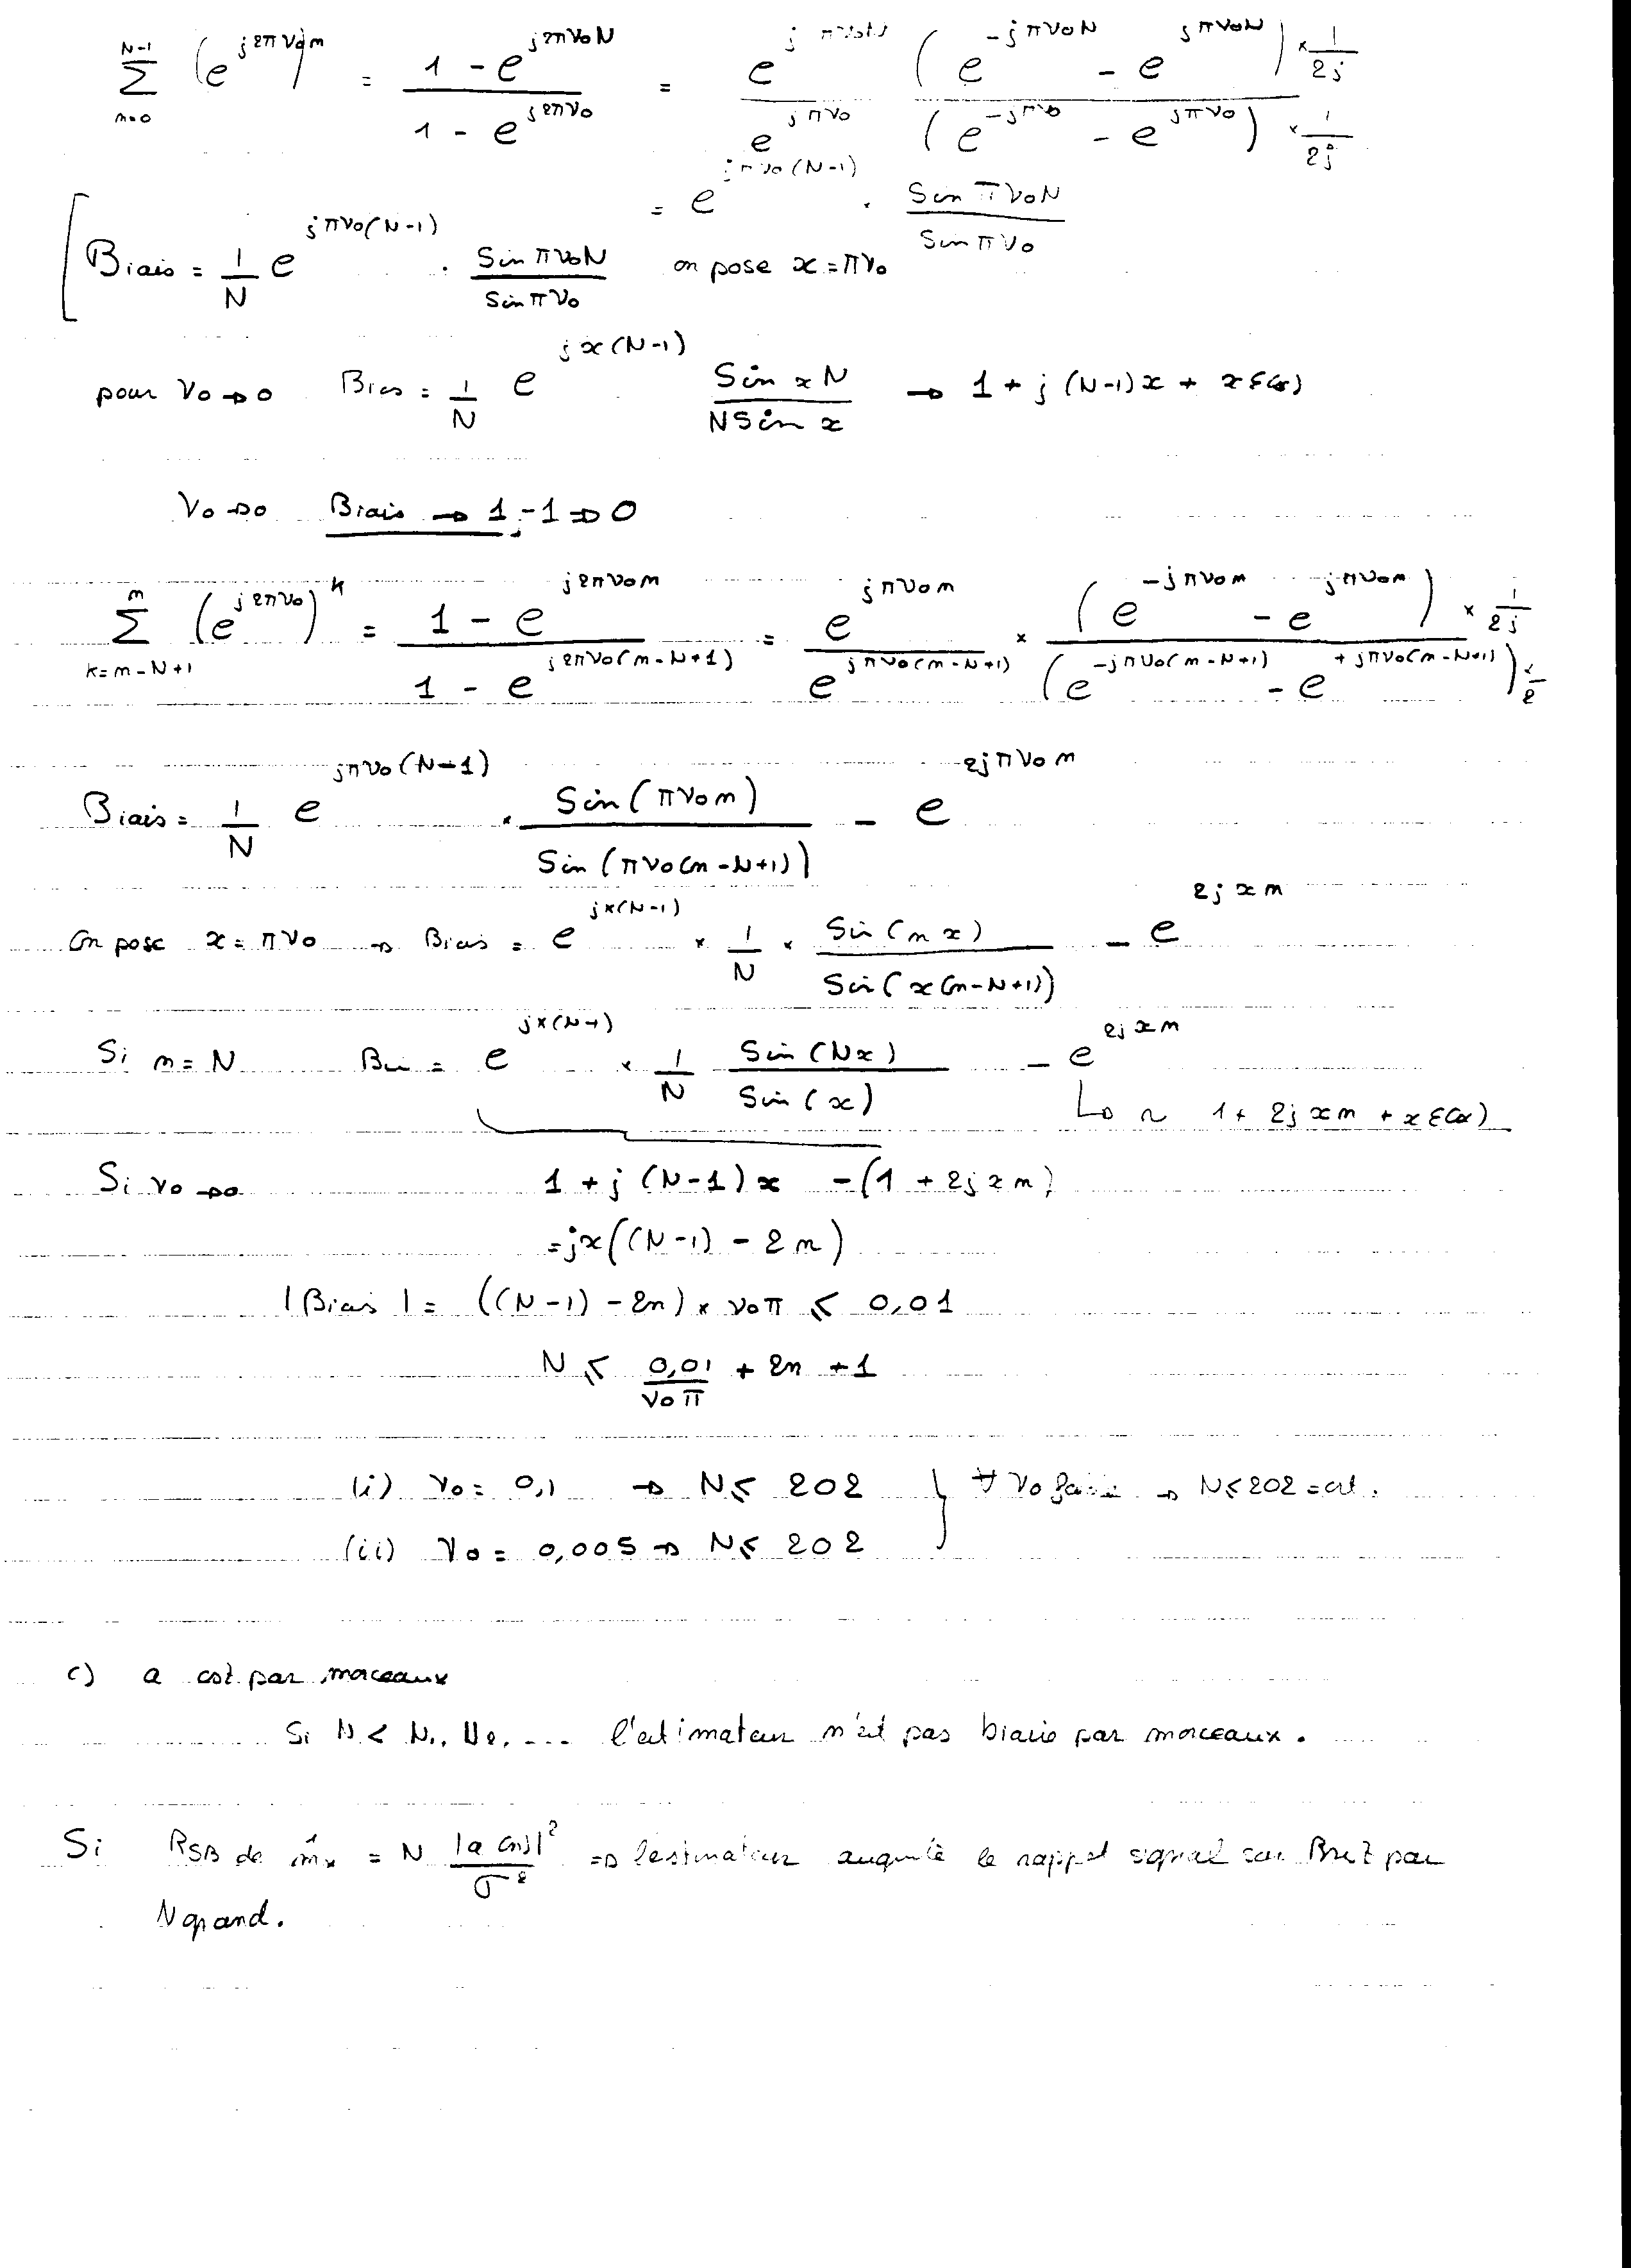 N-1 Σ n=0 (e^{j2πν0})^n = (1 - e^{j2πν0N}) / (1 - e^{j2πν0}) = e^{jπν0N} / e^{jπν0} (e^{-jπν0N} - e^{jπν0N}) × 1/2j / (e^{-jπν0} - e^{jπν0}) × 1/2j
= e^{jπν0(N-1)} . Sin πν0N / Sin πν0
[ Biais = 1/N e^{jπν0(N-1)} . Sin πν0N / Sin πν0 on pose x = πν0
pour ν0 → 0 Bias = 1/N e^{jx(N-1)} Sin xN / N Sin x → 1 + j (N-1)x + x ε(x)
ν0 → 0 Biais → 1 - 1 ⇒ 0
m Σ k=m-N+1 (e^{j2πν0})^k = (1 - e^{j2πν0m}) / (1 - e^{j2πν0(m-N+1)}) = e^{jπν0m} / e^{jπν0(m-N+1)} × (e^{-jπν0m} - e^{jπν0m}) × 1/2j / (e^{-jπν0(m-N+1)} - e^{+jπν0(m-N+1)}) 1/2
Biais = 1/N e^{jπν0(N-1)} × Sin(πν0m) / Sin(πν0(m-N+1)) - e^{2jπν0m}
On pose x = πν0 → Biais = e^{jx(N-1)} × 1/N × Sin(mx) / Sin(x(m-N+1)) - e^{2jxm}
Si m = N Bi = e^{jx(N-1)} × 1/N Sin(Nx) / Sin(x) - e^{2jxm}
↳ ~ 1 + 2jxm + x ε(x)
Si ν0 → 0 1 + j (N-1) x - (1 + 2jxm)
= jx((N-1) - 2m)
|Biais| = ((N-1) - 2n) × ν0π ⩽ 0,01
N ⩽ 0,01 / ν0π + 2n + 1
(i) ν0 = 0,1 → N ⩽ 202 } ∀ ν0 → N ⩽ 202 = cst.
(ii) ν0 = 0,005 → N ⩽ 202
c) a cst par morceaux
Si N < N1, N2, ... l'estimateur n'est pas biaisé par morceaux.
Si RSB de m̂x = N |a(n)|² / σ² ⇒ l'estimateur augmente le rappot signal sur Bruit par
N grand.